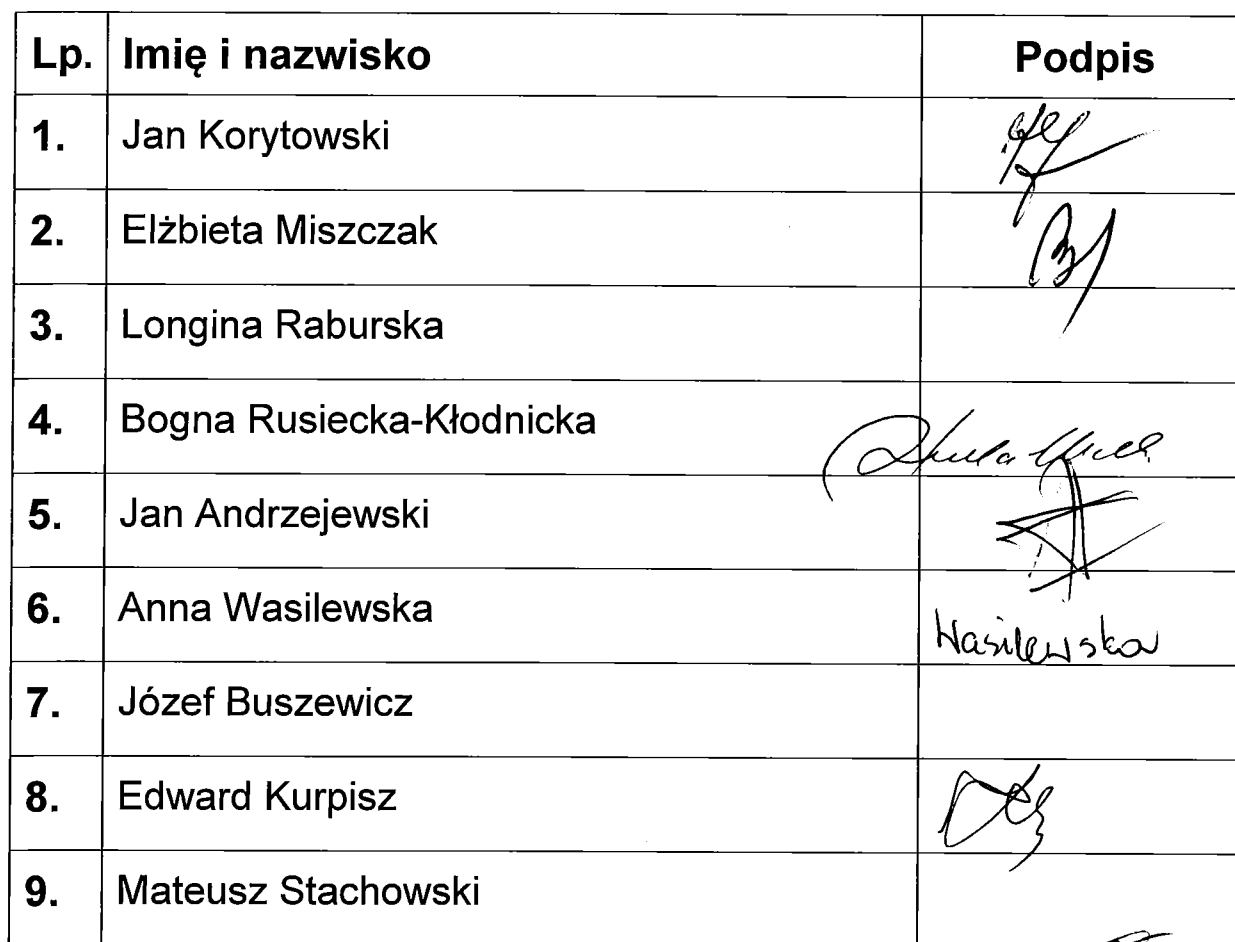 Lp. Imię i nazwisko Podpis
1. Jan Korytowski
2. Elżbieta Miszczak
3. Longina Raburska
4. Bogna Rusiecka-Kłodnicka
5. Jan Andrzejewski
6. Anna Wasilewska Wasilewska
7. Józef Buszewicz
8. Edward Kurpisz
9. Mateusz Stachowski